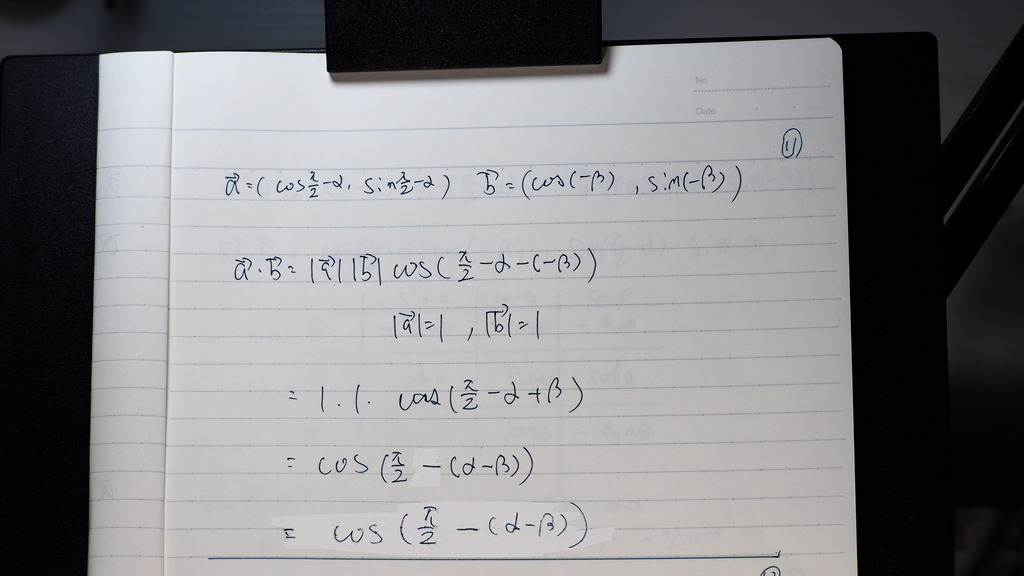 No.
Date
⑪
a⃗=(cosπ/2-α, sinπ/2-α) b⃗=(cos(-β), sin(-β))
a⃗·b⃗=|a⃗||b⃗|cos(π/2-α-(-β))
|a⃗|=1, |b⃗|=1
=1.1.cos(π/2-α+β)
=cos(π/2-(α-β))
=cos(π/2-(α-β))